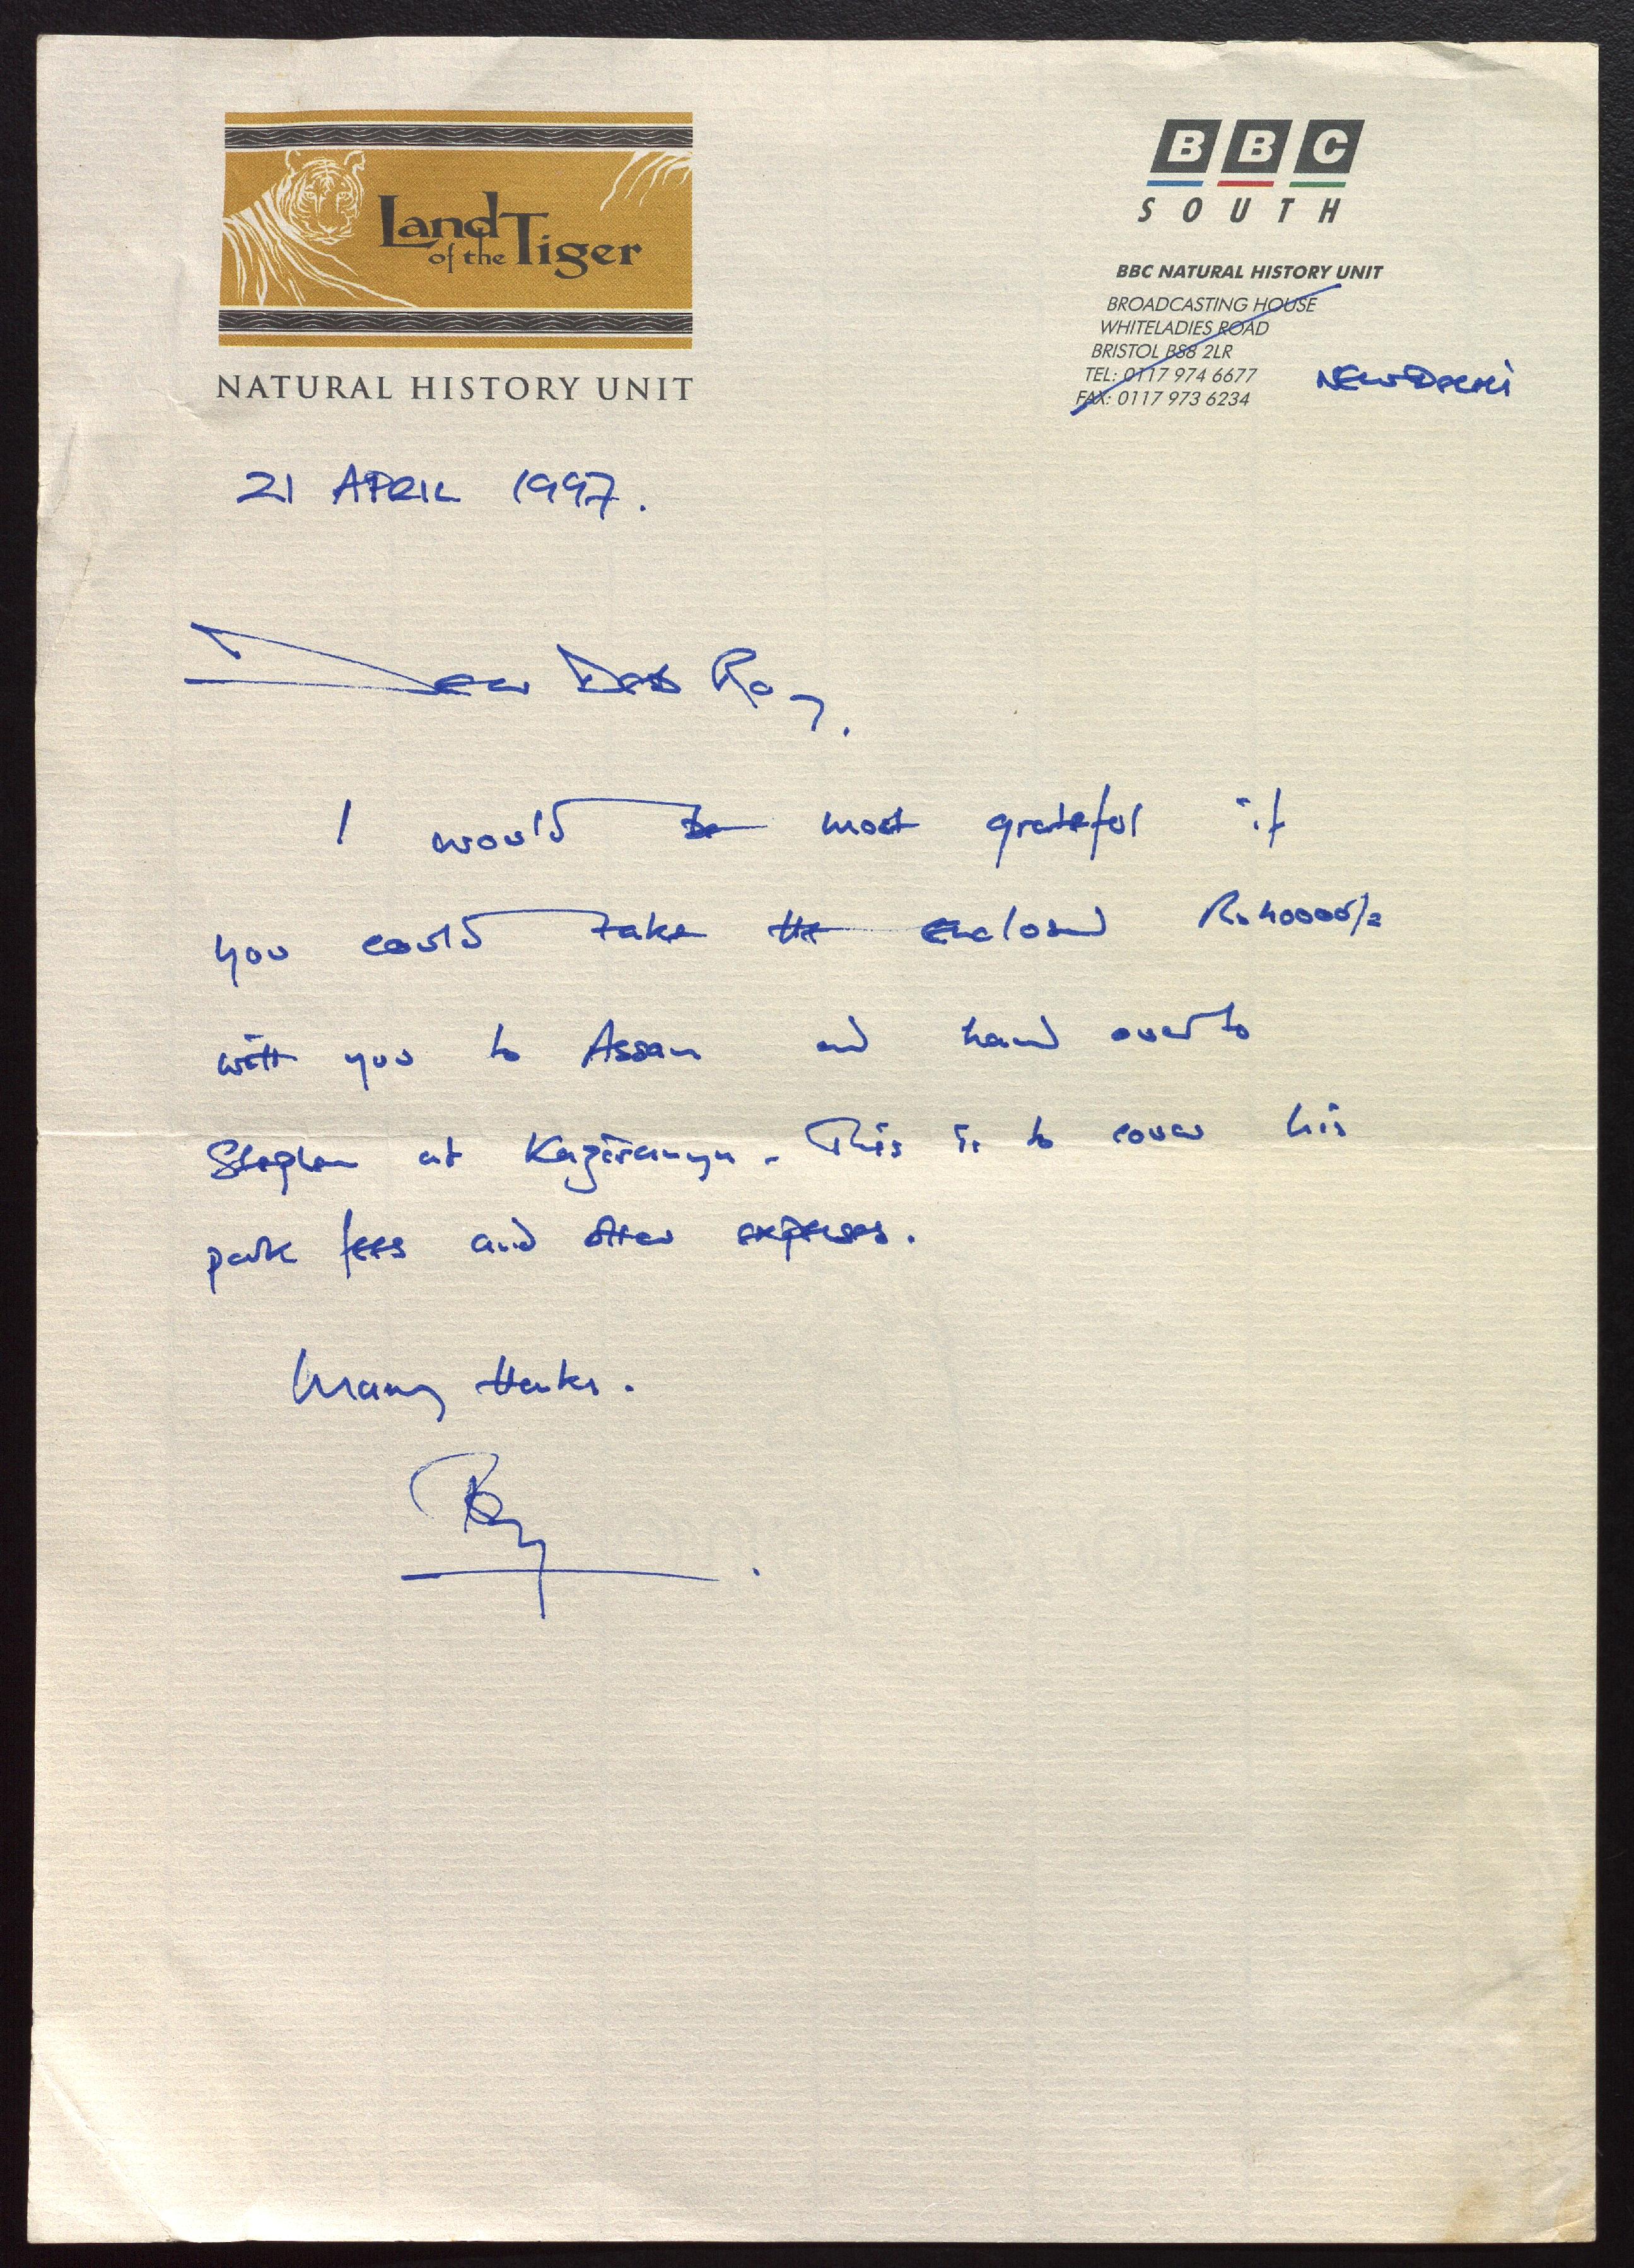 Land
of the Tiger
NATURAL HISTORY UNIT
BBC
SOUTH
BBC NATURAL HISTORY UNIT
BROADCASTING HOUSE
WHITELADIES ROAD
BRISTOL BS8 2LR
TEL: 0117 974 6677
FAX: 0117 973 6234
NEW DELHI
21 APRIL 1997.
Dear Deb Roy,
I would be most grateful if
you could take the enclosed
with you to Assam and hand over to
Stephen at Kaziranga. This is to cover his
park fees and other expenses.
Many thanks.